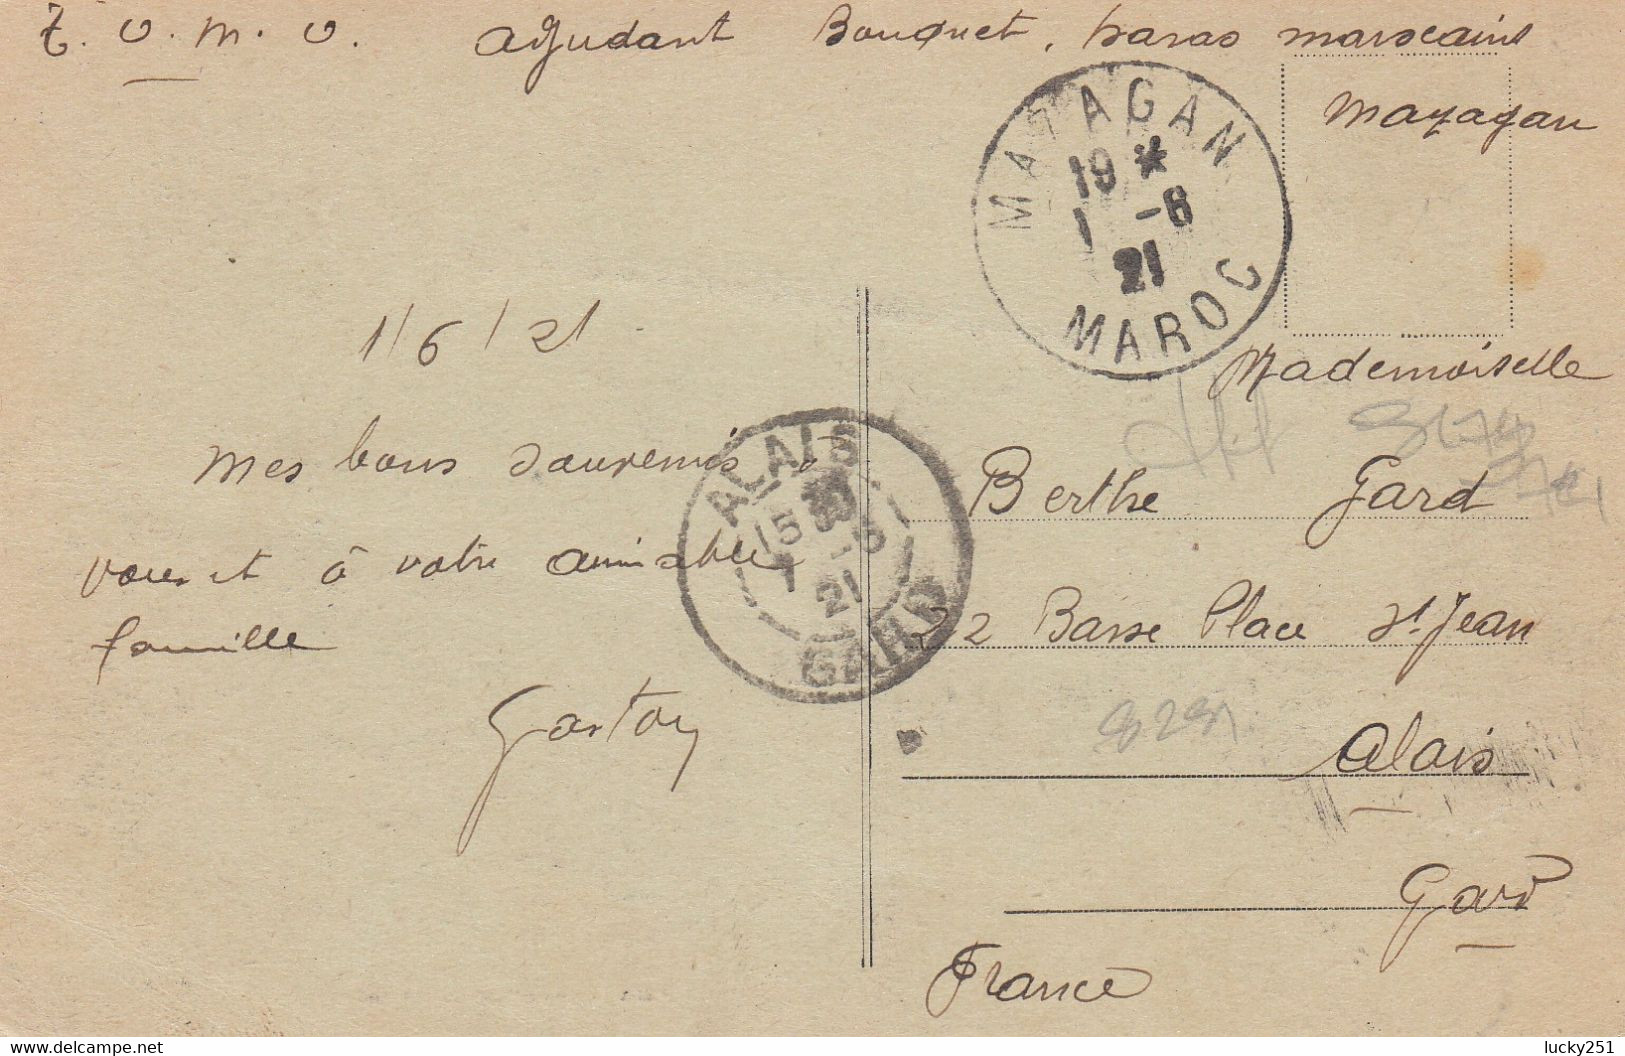 T. O. M. O. Adjudant Bouquet, haras marocains
Mazagan
MAZAGAN
19 *
1 -6
21
MAROC
1/6/21
Mademoiselle
Mes bons souvenirs à
vous et à votre aimable
famille
Gaston
ALAIS
15
7 -6
21
GARD
Berthe Gard
22 Basse Place St. Jean
Alais
Gard
France
8291
lucky251
delcampe.net